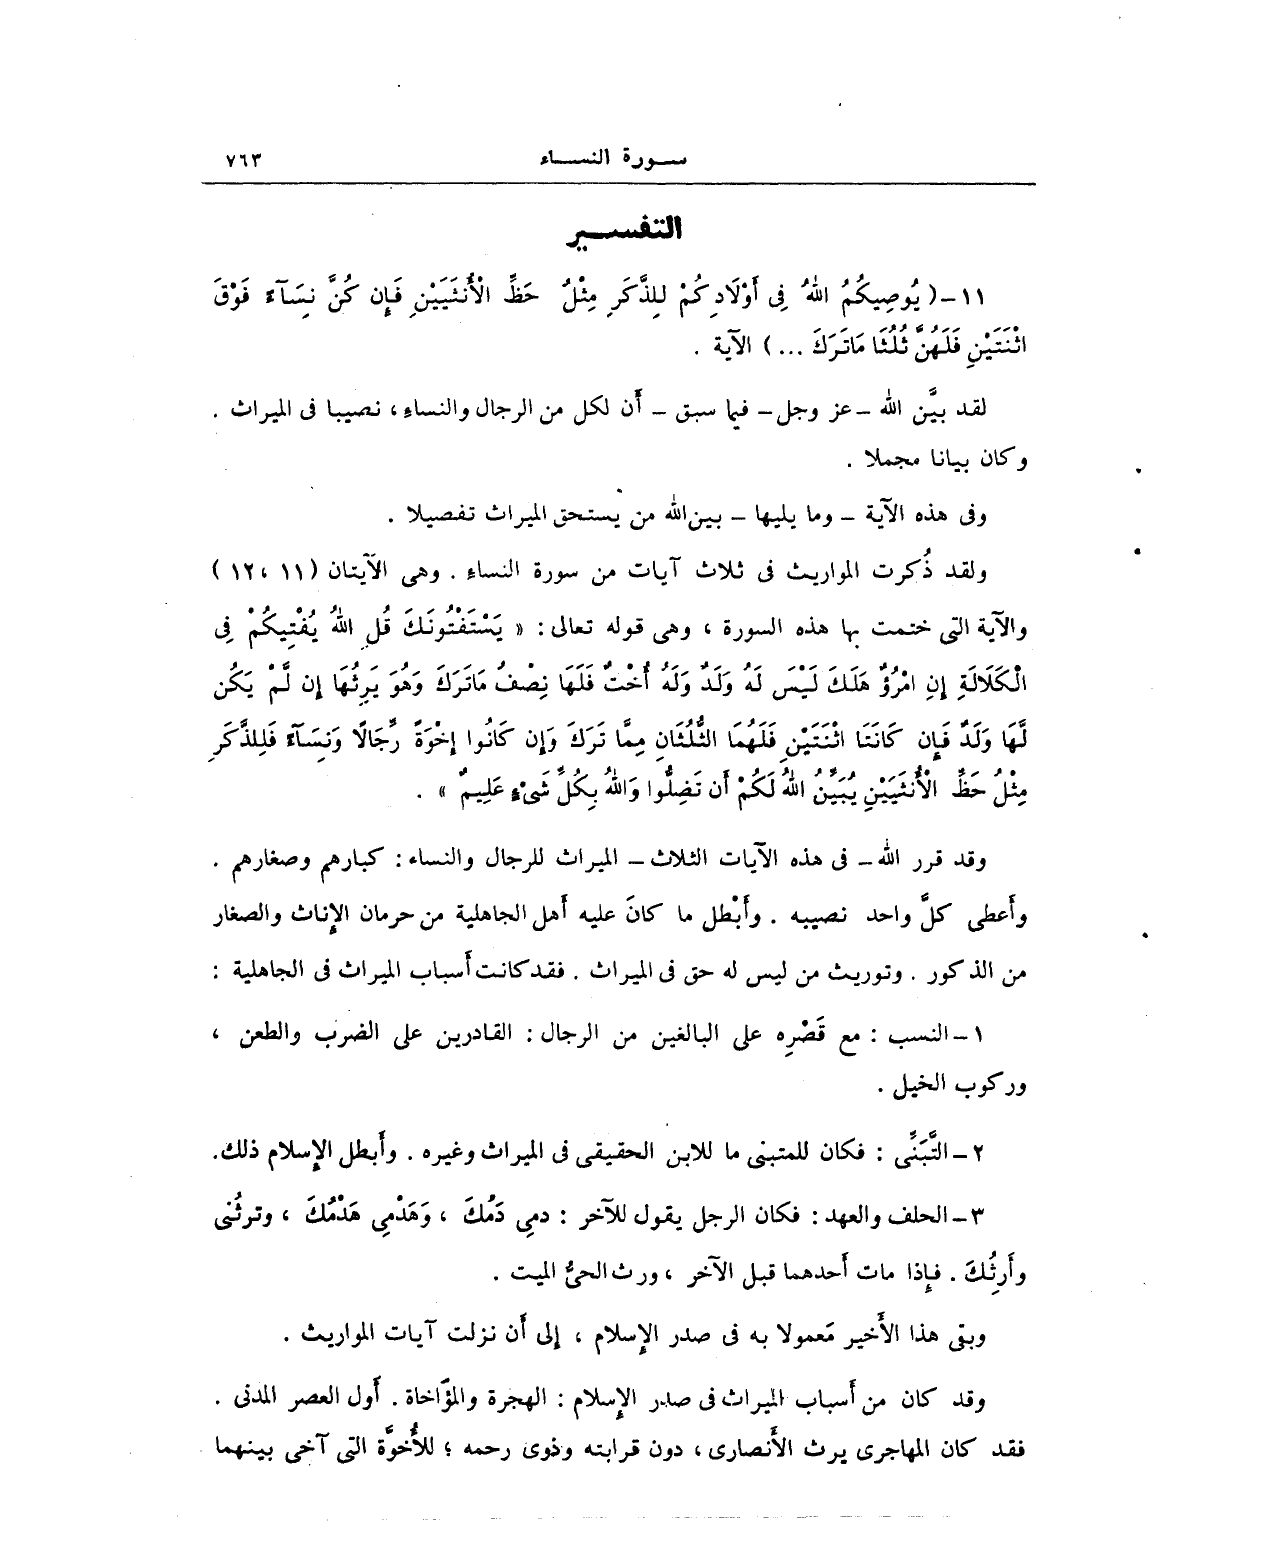 سورة النساء ٧٦٣
التفسير
١١-(يُوصِيكُمُ اللهُ فِى أَوْلَادِكُمْ لِلذَّكَرِ مِثْلُ حَظِّ الْأُنثَيَيْنِ فَإِن كُنَّ نِسَآءً فَوْقَ
اثْنَتَيْنِ فَلَهُنَّ ثُلُثَا مَاتَرَكَ ...) الآية .
لقد بيَّن الله -عز وجل- فيما سبق - أَن لكل من الرجال والنساءِ، نصيبا فى الميراث .
وكان بيانا مجملا .
وفى هذه الآية - وما يليها - بين الله من يستحق الميراث تفصيلا .
ولقد ذُكرت المواريث فى ثلاث آيات من سورة النساءِ . وهى الآيتان (١١ ، ١٢)
والآية التى ختمت بها هذه السورة ، وهى قوله تعالى: « يَسْتَفْتُونَكَ قُلِ اللهُ يُفْتِيكُمْ فِى
الْكَلَالَةِ إِنِ امْرُؤٌ هَلَكَ لَيْسَ لَهُ وَلَدٌ وَلَهُ أُخْتٌ فَلَهَا نِصْفُ مَاتَرَكَ وَهُوَ يَرِثُهَا إِن لَّمْ يَكُن
لَّهَا وَلَدٌ فَإِن كَانَتَا اثْنَتَيْنِ فَلَهُمَا الثُّلُثَانِ مِمَّا تَرَكَ وَإِن كَانُوا إِخْوَةً رِّجَالًا وَنِسَآءً فَلِلذَّكَرِ
مِثْلُ حَظِّ الْأُنثَيَيْنِ يُبَيِّنُ اللهُ لَكُمْ أَن تَضِلُّوا وَاللهُ بِكُلِّ شَىْءٍ عَلِيمٌ » .
وقد قرر الله - فى هذه الآيات الثلاث - الميراث للرجال والنساء: كبارهم وصغارهم .
وأَعطى كلَّ واحد نصيبه . وأَبْطل ما كانَ عليه أَهل الجاهلية من حرمان الإِناث والصغار
من الذكور . وتوريث من ليس له حق فى الميراث . فقد كانت أَسباب الميراث فى الجاهلية :
١-النسب : مع قَصْرِه على البالغين من الرجال : القادرين على الضرب والطعن ،
وركوب الخيل .
٢-التَّبَنِّى : فكان للمتبنى ما للابن الحقيقى فى الميراث وغيره . وأَبطل الإِسلام ذلك.
٣-الحلف والعهد : فكان الرجل يقول للآخر : دمِى دَمُكَ ، وَهَدْمِى هَدْمُكَ ، وترثُنى
وأَرِثُكَ . فإِذا مات أَحدهما قبل الآخر ، ورث الحىُّ الميت .
وبقى هذا الأَخير مَعمولا به فى صدر الإِسلام ، إِلى أَن نزلت آيات المواريث .
وقد كان من أَسباب الميراث فى صدر الإِسلام : الهجرة والمؤاخاة . أَول العصر المدنى .
فقد كان المهاجرى يرث الأَنصارى ، دون قرابته وذوى رحمه ؛ للأُخوَّة التى آخى بينهما